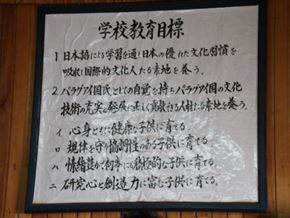 学校教育目標
1 日本語による学習を通し日本の優れた文化習慣を
吸収し国際的文化人たる素地を養う。
2 パラグアイ国民としての自覚を持ちパラグアイ国の文化
技術の充実と発展に正しく貢献きる人材たる素地を養う。
イ 心身ともに健康な子供に育てる
ロ 規律を守り協調性のある子供に育てる
ハ 情緒豊かで何事にも積極的な子供に育てる
ニ 研究心と創造力に富む子供に育てる